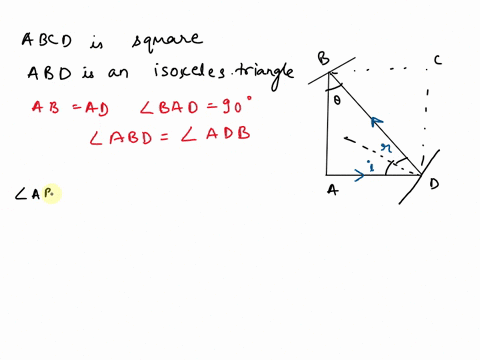 ABCD is square
ABD is an isoxeles triangle
AB = AD ∠BAD = 90°
∠ABD = ∠ADB
∠AB
B
C
θ
r
i
A
D